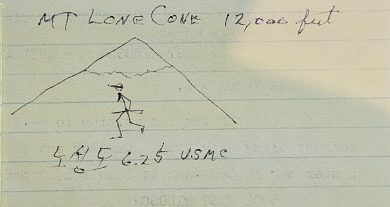 MT LONE CONE 12,000 feet
6.25 USMC